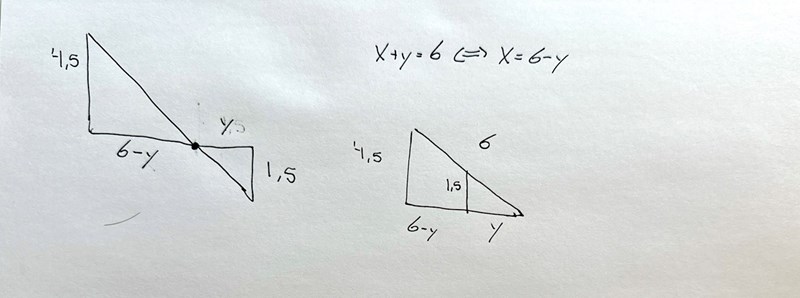 4,5
x+y=6 ⟺ x=6-y
6-y
y
1,5
4,5
6
1,5
6-y
y